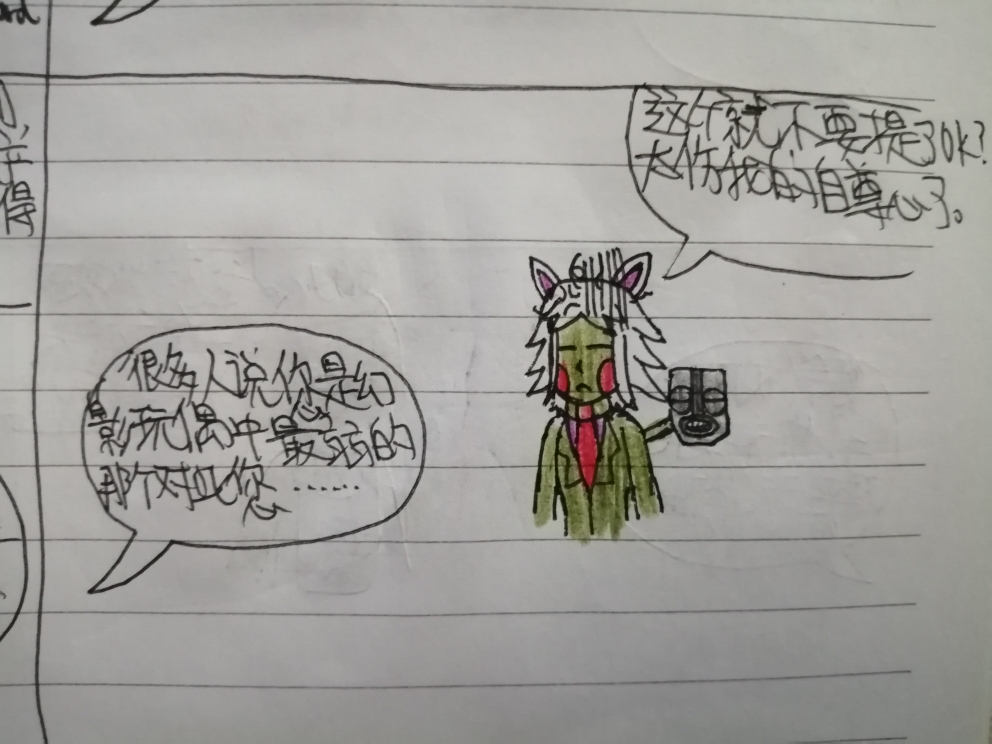 很多人说你是幻
影玩偶中最弱的
那个对此您……
这个就不要提了OK?
太伤我的自尊心了。
得